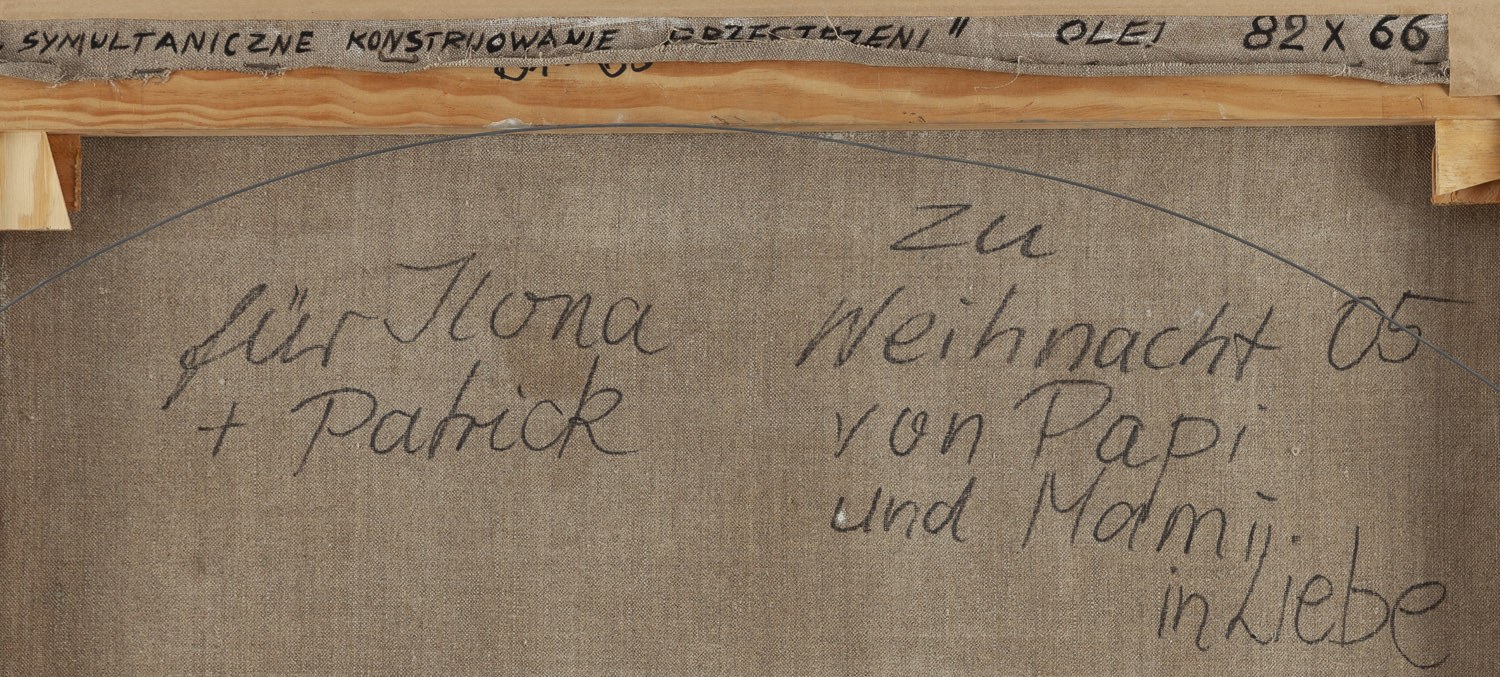 SYMULTANICZNE KONSTRUOWANIE PRZESTRZENI" OLEJ 82 X 66
für Ilona
+ Patrick
zu
Weihnacht 05
von Papi
und Mamij.
in Liebe